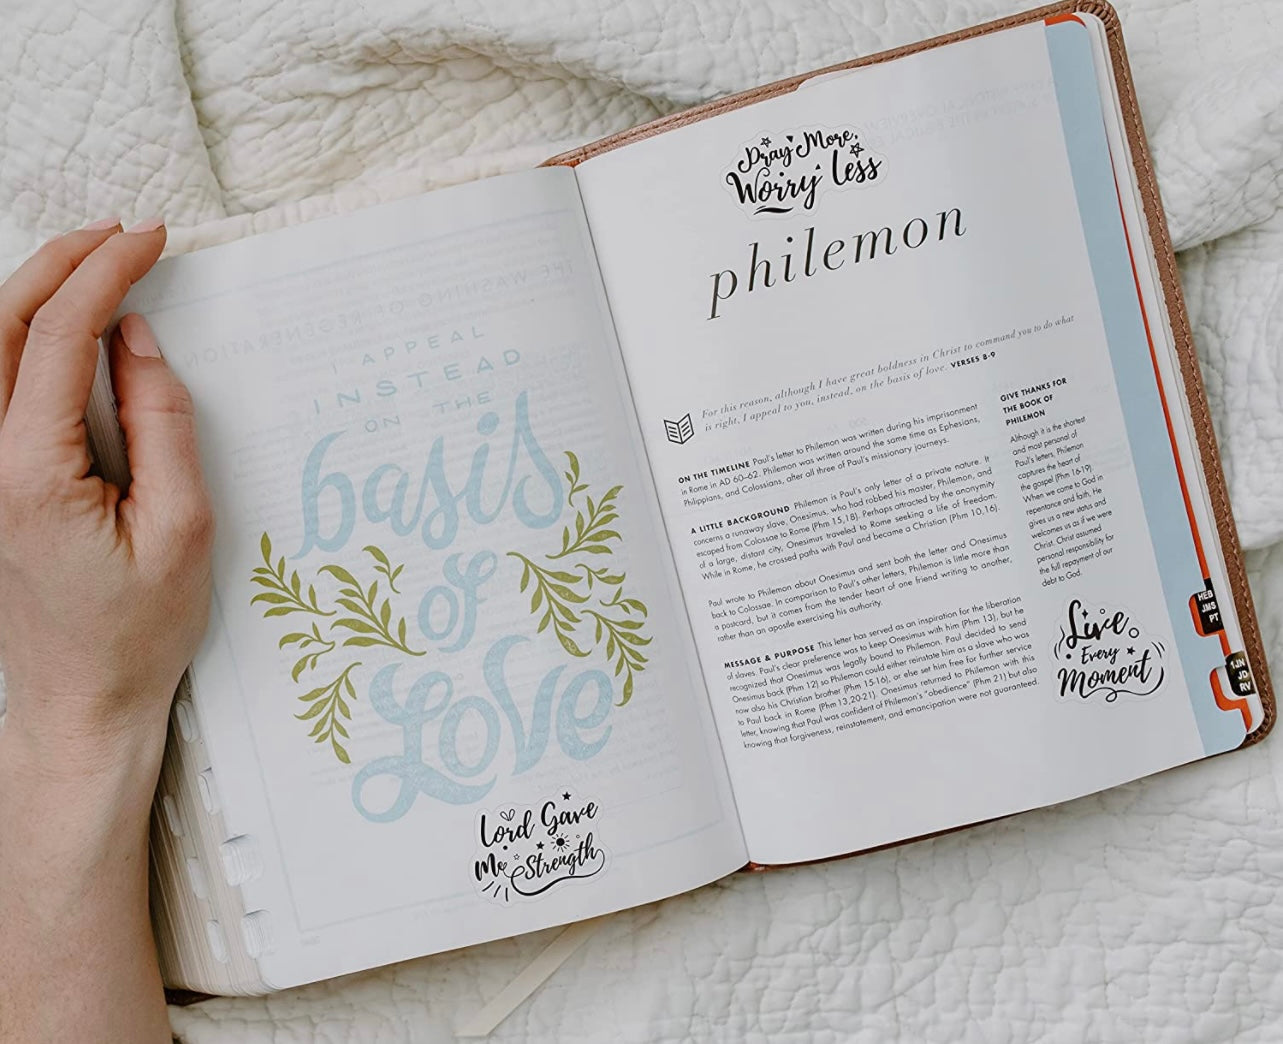 I APPEAL
INSTEAD
ON THE
basis
of
Love
Lord Gave
Me Strength
Pray More,
Worry Less
philemon
For this reason, although I have great boldness in Christ to command you to do what
is right, I appeal to you, instead, on the basis of love. VERSES 8-9
ON THE TIMELINE Paul's letter to Philemon was written during his imprisonment
in Rome in AD 60–62. Philemon was written around the same time as Ephesians,
Philippians, and Colossians, after all three of Paul's missionary journeys.
A LITTLE BACKGROUND Philemon is Paul's only letter of a private nature. It
concerns a runaway slave, Onesimus, who had robbed his master, Philemon, and
escaped from Colossae to Rome (Phm 15,18). Perhaps attracted by the anonymity
of a large, distant city, Onesimus traveled to Rome seeking a life of freedom.
While in Rome, he crossed paths with Paul and became a Christian (Phm 10,16).
Paul wrote to Philemon about Onesimus and sent both the letter and Onesimus
back to Colossae. In comparison to Paul's other letters, Philemon is little more than
a postcard, but it comes from the tender heart of one friend writing to another,
rather than an apostle exercising his authority.
MESSAGE & PURPOSE This letter has served as an inspiration for the liberation
of slaves. Paul's clear preference was to keep Onesimus with him (Phm 13), but he
recognized that Onesimus was legally bound to Philemon. Paul decided to send
Onesimus back (Phm 12) so Philemon could either reinstate him as a slave who was
now also his Christian brother (Phm 15-16), or else set him free for further service
to Paul back in Rome (Phm 13,20-21). Onesimus returned to Philemon with this
letter, knowing that Paul was confident of Philemon's "obedience" (Phm 21) but also
knowing that forgiveness, reinstatement, and emancipation were not guaranteed.
GIVE THANKS FOR
THE BOOK OF
PHILEMON
Although it is the shortest
and most personal of
Paul's letters, Philemon
captures the heart of
the gospel (Phm 16-19).
When we come to God in
repentance and faith, He
gives us a new status and
welcomes us as if we were
Christ. Christ assumed
personal responsibility for
the full repayment of our
debt to God.
Live
Every
Moment
HEB
JMS
PT
1JN
JD
RV